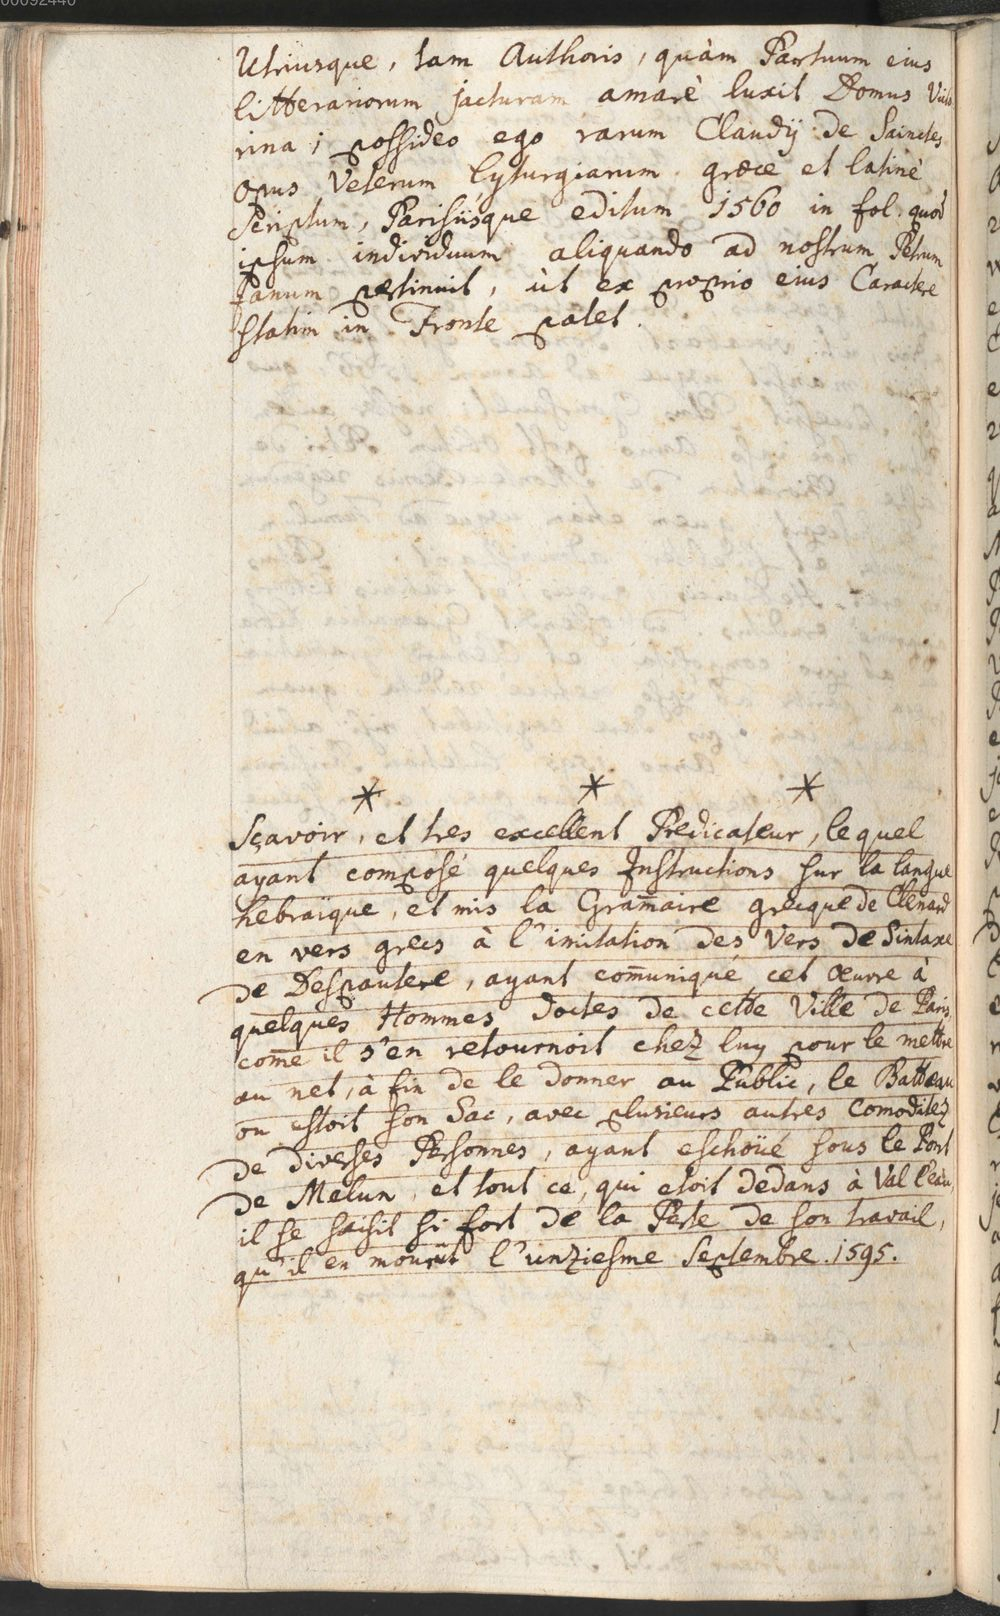 00092440
Utriusque, tam Authoris, quàm Partuum eius
litterariorum jacturam amarè luxit Domus Victo
rina; possideo ego rarum Claudÿ de Sainctes
opus Veterum lyturgiarum græce et latinè
scriptum, Parisiisque editum 1560 in fol. quod
ipsum individuum aliquando ad nostrum Petrum
fanum pertinuit, ùt ex proprio eius Caractere
statim in Fronte patet.
* * *
Sçavoir, et tres excellent Predicateur, lequel
ayant composé quelques Instructions sur la langue
hebraïque, et mis la Gram̄aire grecque de Clenard
en vers grecs à l'imitation des Vers de Sintaxe
de Despautere, ayant com̄uniqué cet œuvre à
quelques Hommes doctes de cette Ville de Paris,
com̄e il s'en retournoit chez luy pour le mettre
au net, à fin de le donner au Public, le Batteau
ou estoit son Sac, avec plusieurs autres Comoditez
de diverses Personnes, ayant eschoüé sous le Pont
de Melun, et tout ce, qui etoit dedans à Val l'eau,
il se saisit si fort de la Perte de son travail,
qu'il en mourût l'unziesme Septembre. 1595.